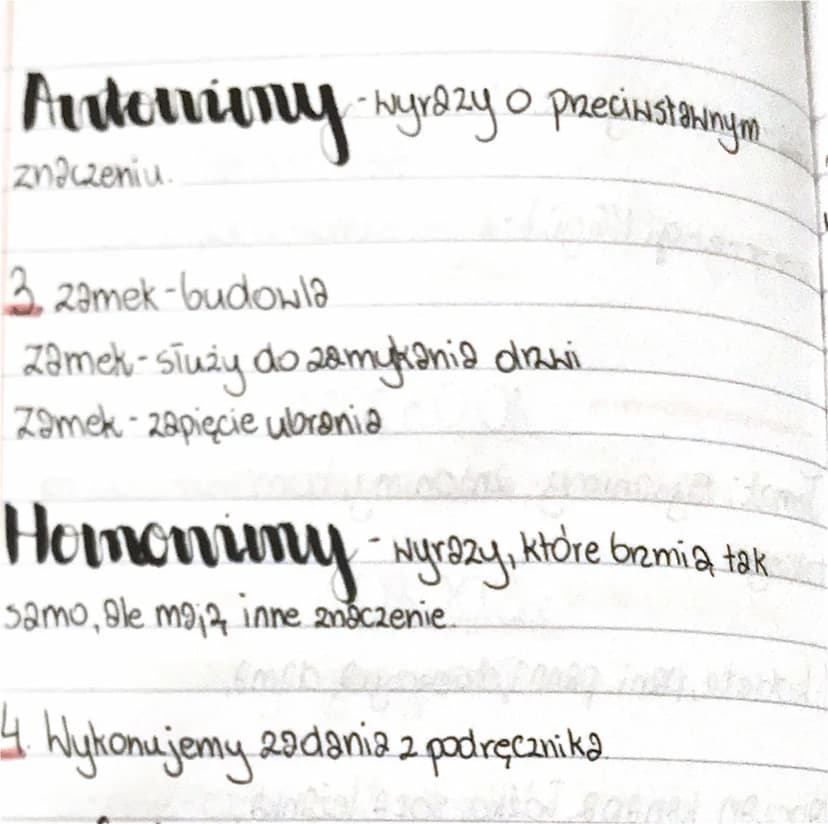 Antonimy - wyrazy o przeciwstawnym
znaczeniu.
3. zamek - budowla
zamek - służy do zamykania drzwi
zamek - zapięcie ubrania
Homonimy - wyrazy, które brzmią tak
samo, ale mają inne znaczenie.
4. Wykonujemy zadania z podręcznika